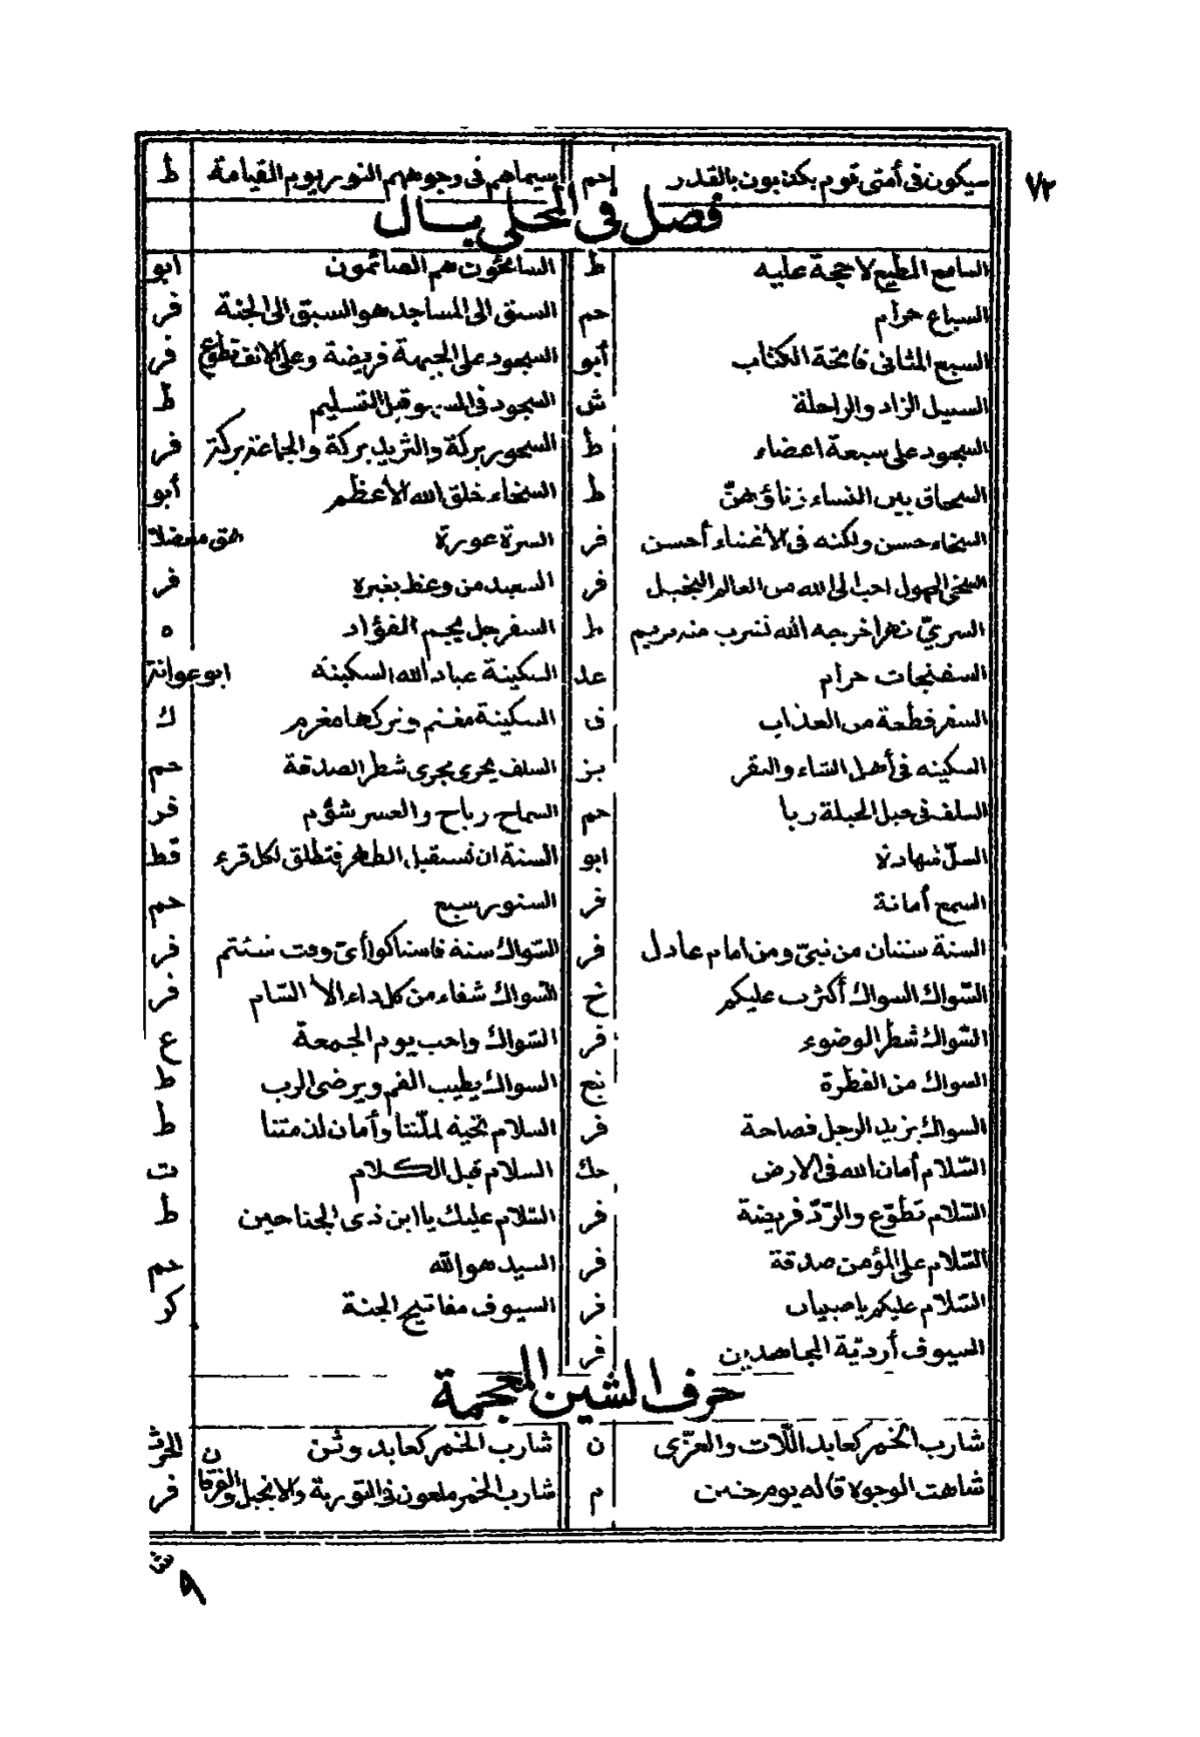 ٧٢
سيكون في أمتي قوم يكذبون بالقدر حم سيماهم في وجوههم النور يوم القيامة ط
فصل في المحلى بال
السامع المطيع لا حجة عليه ط السائحون هم الصائمون ابو
السباع حرام حم السبق الى المساجد هو السبق الى الجنة فر
السبع المثاني فاتحة الكتاب أبو السجود على الجبهة فريضة وعلى الانف تطوع فر
السبيل الزاد والراحلة ش السجود في السهو قبل التسليم ط
السجود على سبعة اعضاء ط السحور بركة والثريد بركة والجماعة بركة فر
السحاق بين النساء زنا بينهن ط السخاء خلق الله الاعظم أبو
السخاء حسن ولكنه في الاغنياء أحسن فر السرة عورة هق
السخي الجهول احب الى الله من العالم البخيل فر السعيد من وعظ بغيره فر
السري نهر اخرجه الله لشرب منه مريم ط السفرجل يجم الفؤاد ه
السفنجات حرام عد السكينة عباد الله السكينة ابو عوانة
السفر قطعة من العذاب ق السكينة مغنم وتركها مغرم ك
السكينه في أهل الشاء والبقر بز السلف يجري مجرى شطر الصدقة حم
السلف في حبل الحبلة ربا حم السماح رباح والعسر شؤم فر
السل شهادة ابو السنة ان تستقبل الطهر فتطلق لكل قرء قط
السمع أمانة فر السنور سبع حم
السنة سنتان من نبي ومن امام عادل فر السواك سنة فاستاكوا أي وقت شئتم فر
السواك السواك أكثرت عليكم خ السواك شفاء من كل داء الا السام فر
السواك شطر الوضوء فر السواك واجب يوم الجمعة ع
السواك من الفطرة نع السواك يطيب الفم ويرضى الرب ط
السواك يزيد الرجل فصاحة فر السلام تحية لملتنا وأمان لذمتنا ط
السلام أمان الله في الارض حك السلام قبل الكلام ت
السلام تطوع والرد فريضة فر السلام عليك يا ابن ذي الجناحين ط
السلام على المؤمن صدقة فر السيد هو الله حم
السلام عليكم يا صبيان فر السيوف مفاتيح الجنة كر
السيوف أردية المجاهدين فر
حرف الشين المعجمة
شارب الخمر كعابد اللات والعزى ن شارب الخمر كعابد وثن ن الحرث
شاهت الوجوه قاله يوم حنين م شارب الخمر ملعون في التورية والانجيل والفرقا فر
٩